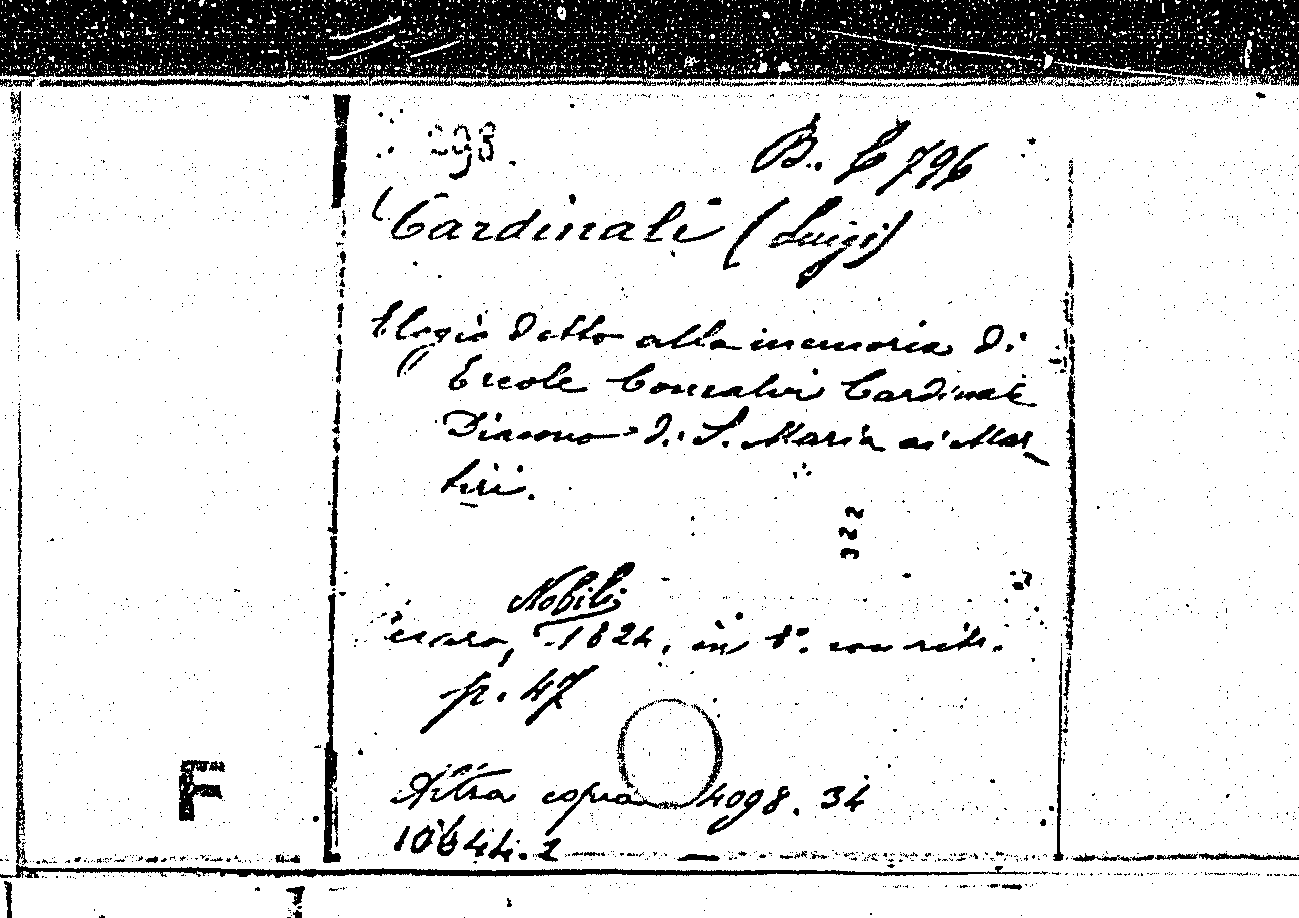 293.
B. C 796
Cardinali (Luigi)
Elogio detto alla memoria di
Ercole Consalvi Cardinale
Diacono di S. Maria ai Mar_
tiri.
322
Nobili
1824, in 8°. con ritr.
p. 47
Altra copia 4098. 34
10644.2
F